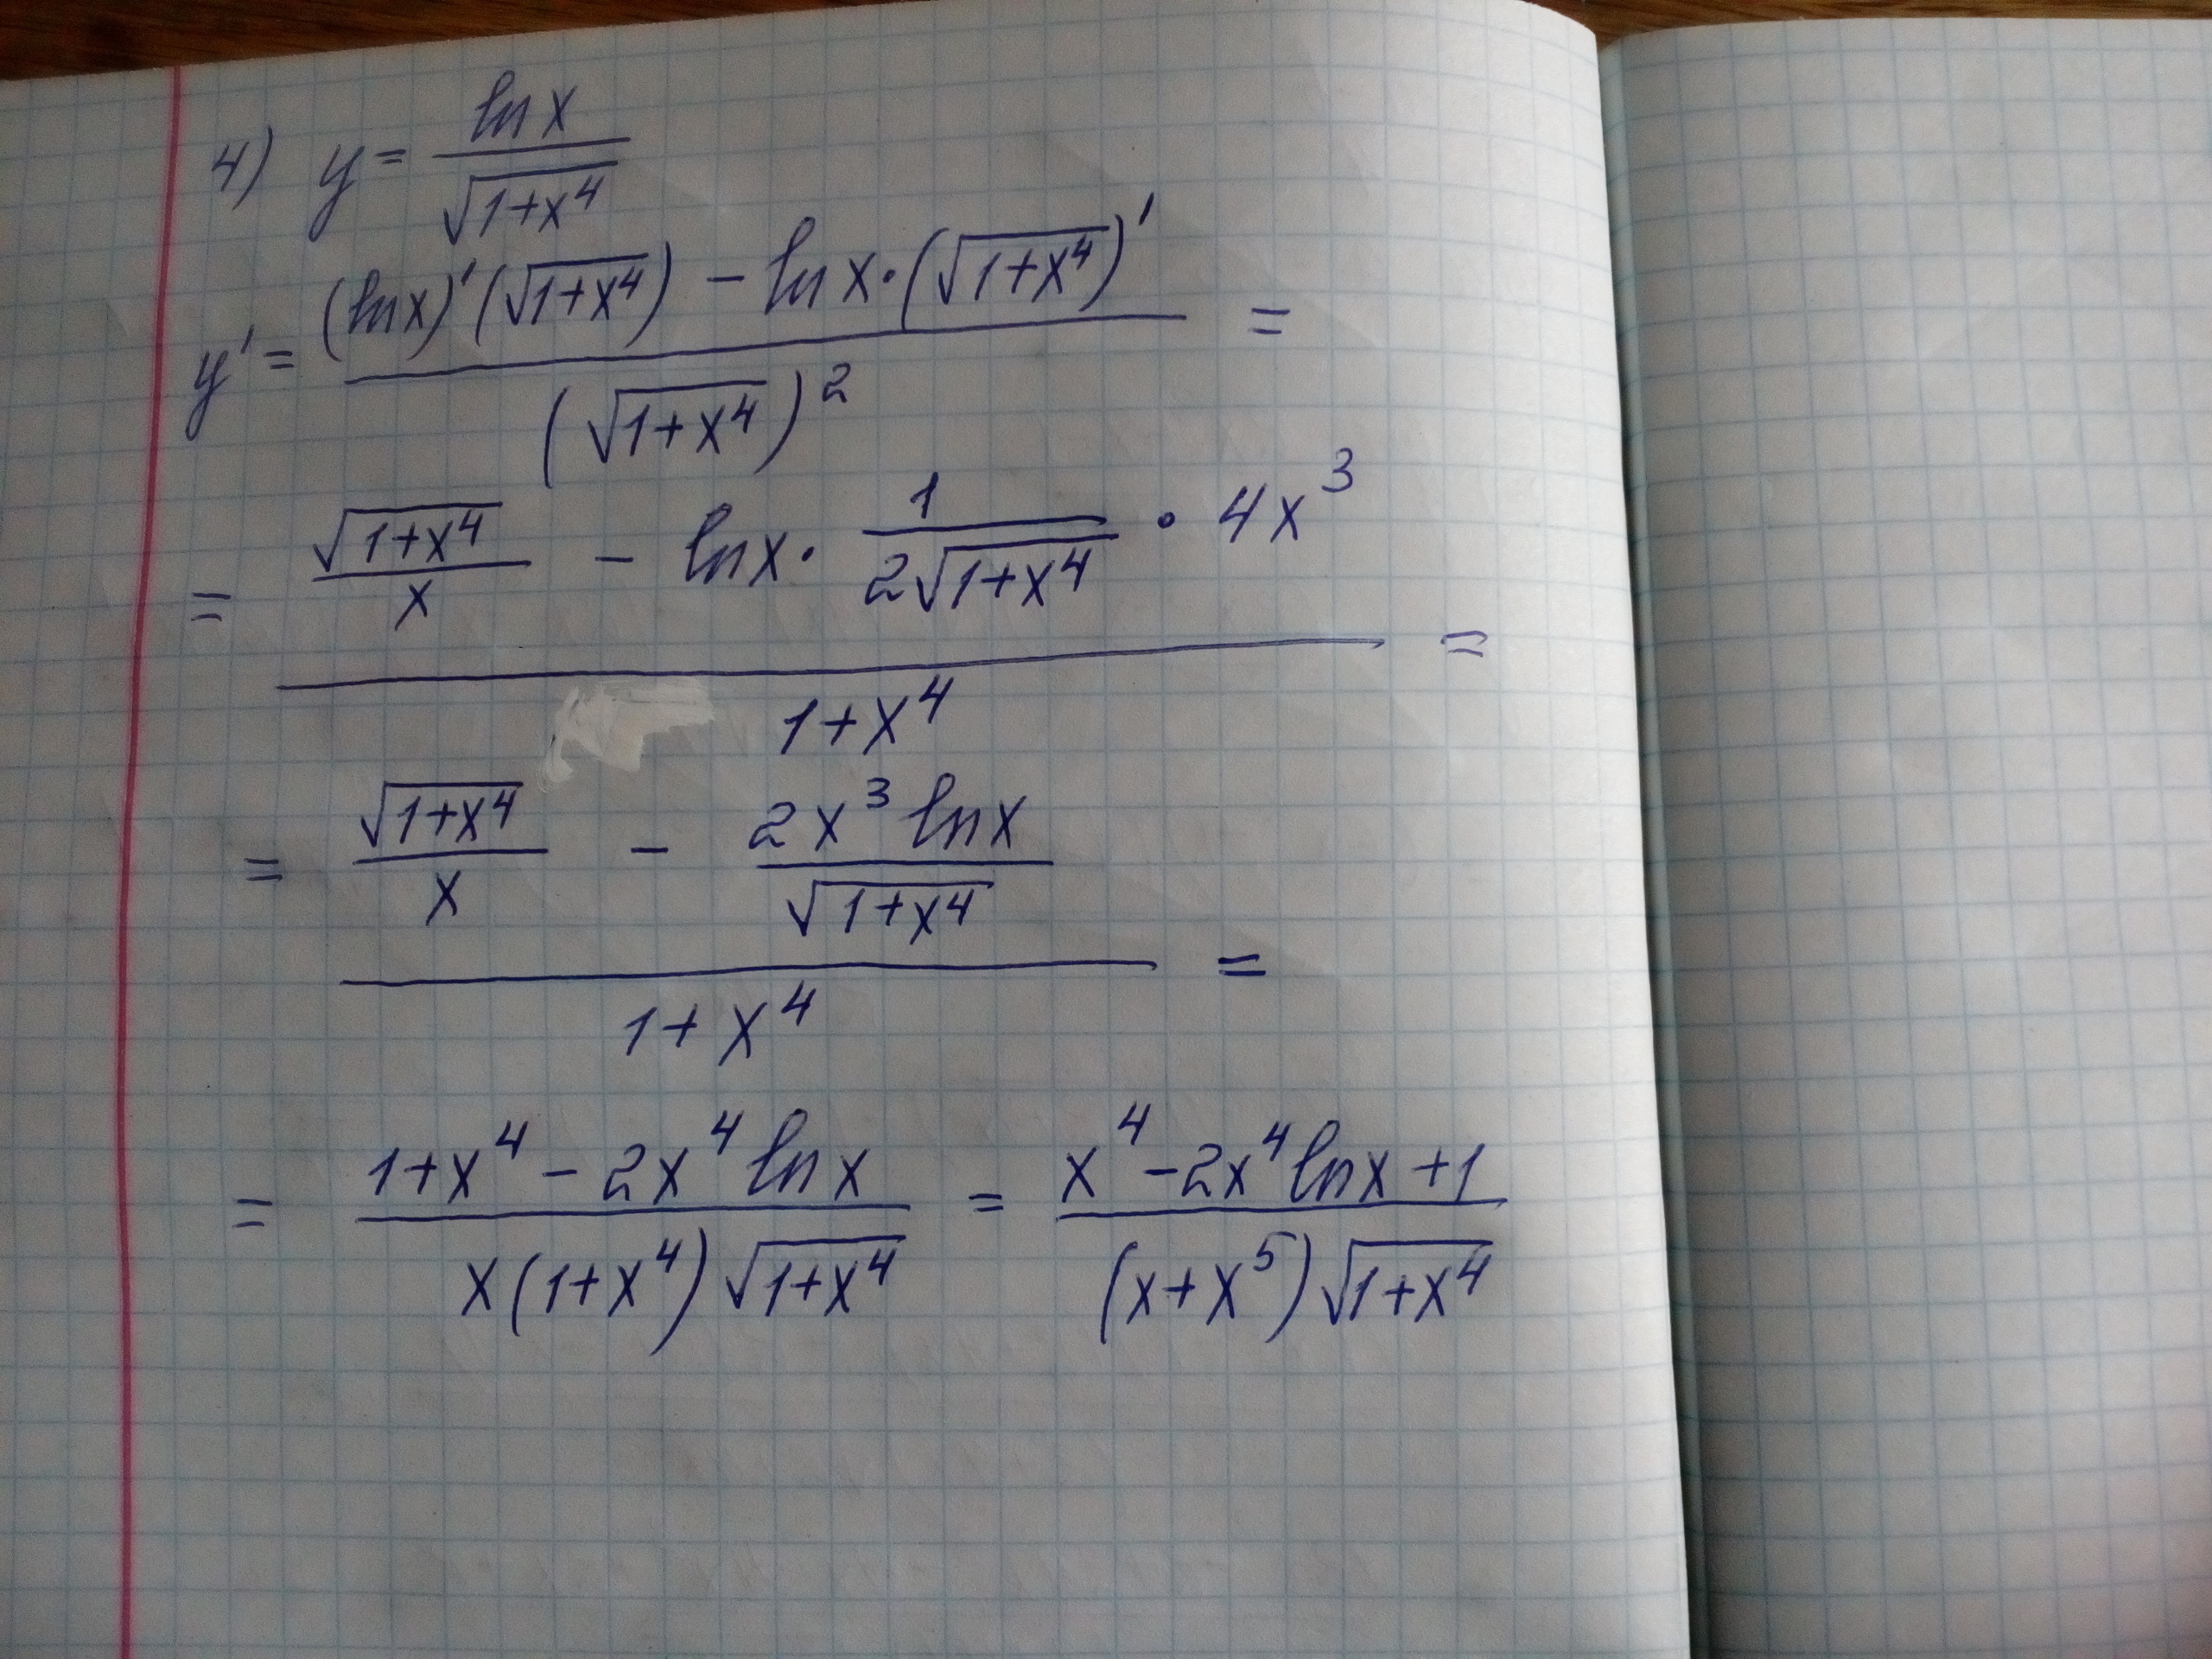 4) y = ln x / √(1+x⁴)
y' = ((ln x)' (√(1+x⁴)) − ln x · (√(1+x⁴))') / (√(1+x⁴))² =
= (√(1+x⁴)/x − ln x · 1/(2√(1+x⁴)) · 4x³) / (1+x⁴) =
= (√(1+x⁴)/x − 2x³ ln x/√(1+x⁴)) / (1+x⁴) =
= (1+x⁴ − 2x⁴ ln x) / (x(1+x⁴)√(1+x⁴)) = (x⁴ − 2x⁴ ln x + 1) / ((x+x⁵)√(1+x⁴))